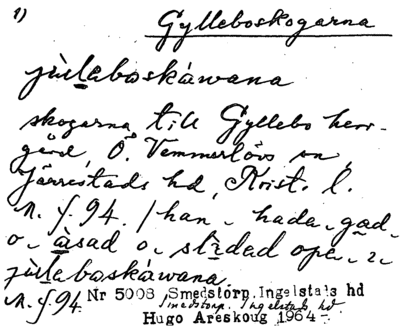 1)
Gylleboskogarna
jùlaboskáwana
skogarna till Gyllebo herr-
gård, Ö. Vemmerlövs sn,
Järrestads hd, Krist. l.
n. f. 94. / han hada gad
o àsad o slidad ope
jùlaboskáwana
Nr 5008 Smedstorp, Ingelstads hd
n. f. 94 Smedstorp, Ingelstads hd
Hugo Areskoug 1964